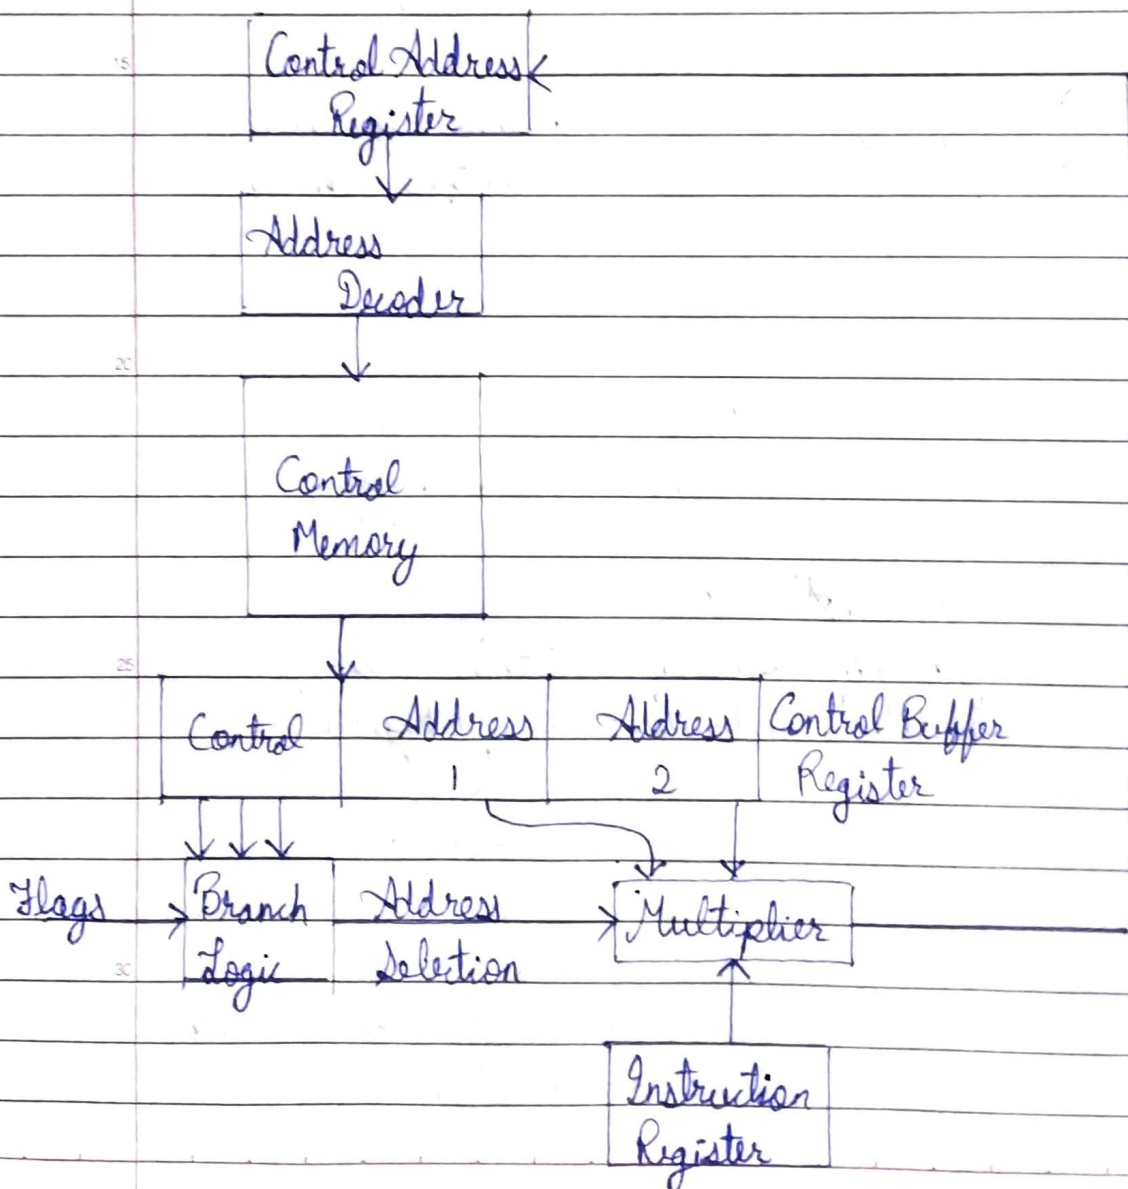 15
Control Address
Register
Address
Decoder
20
Control
Memory
25
Control
Address
1
Address
2
Control Buffer
Register
Flags
Branch
Logic
Address
Selection
Multiplier
30
Instruction
Register